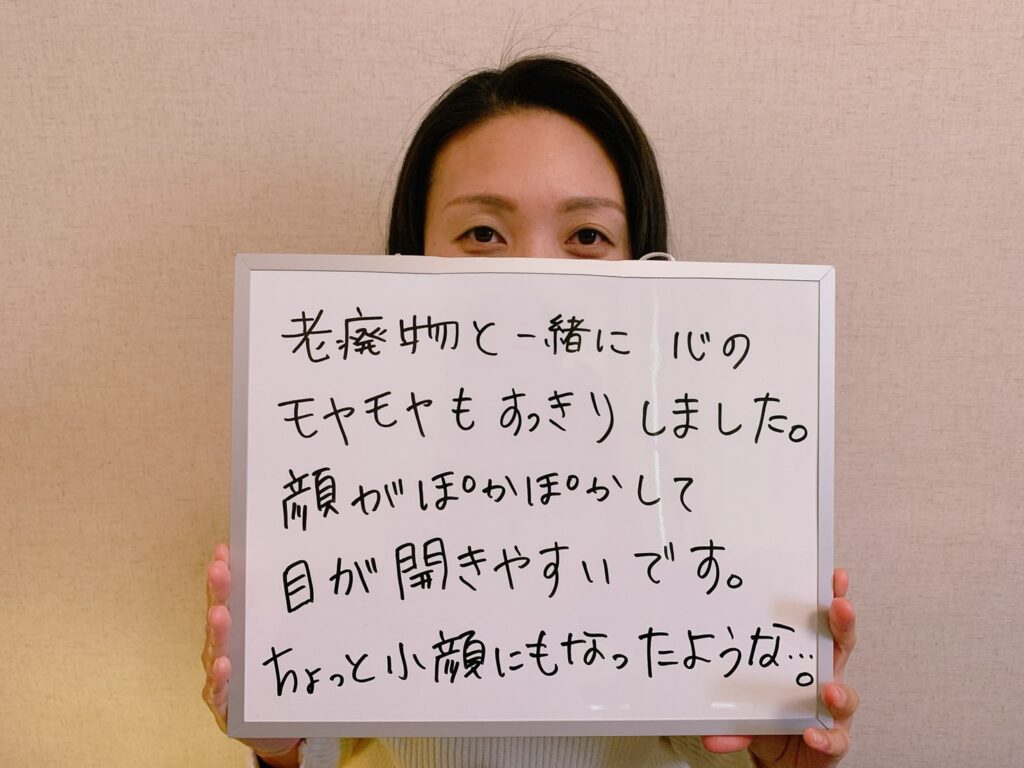 老廃物と一緒に 心の
モヤモヤもすっきりしました。
顔がぽかぽかして
目が開きやすいです。
ちょっと小顔にもなったような…。